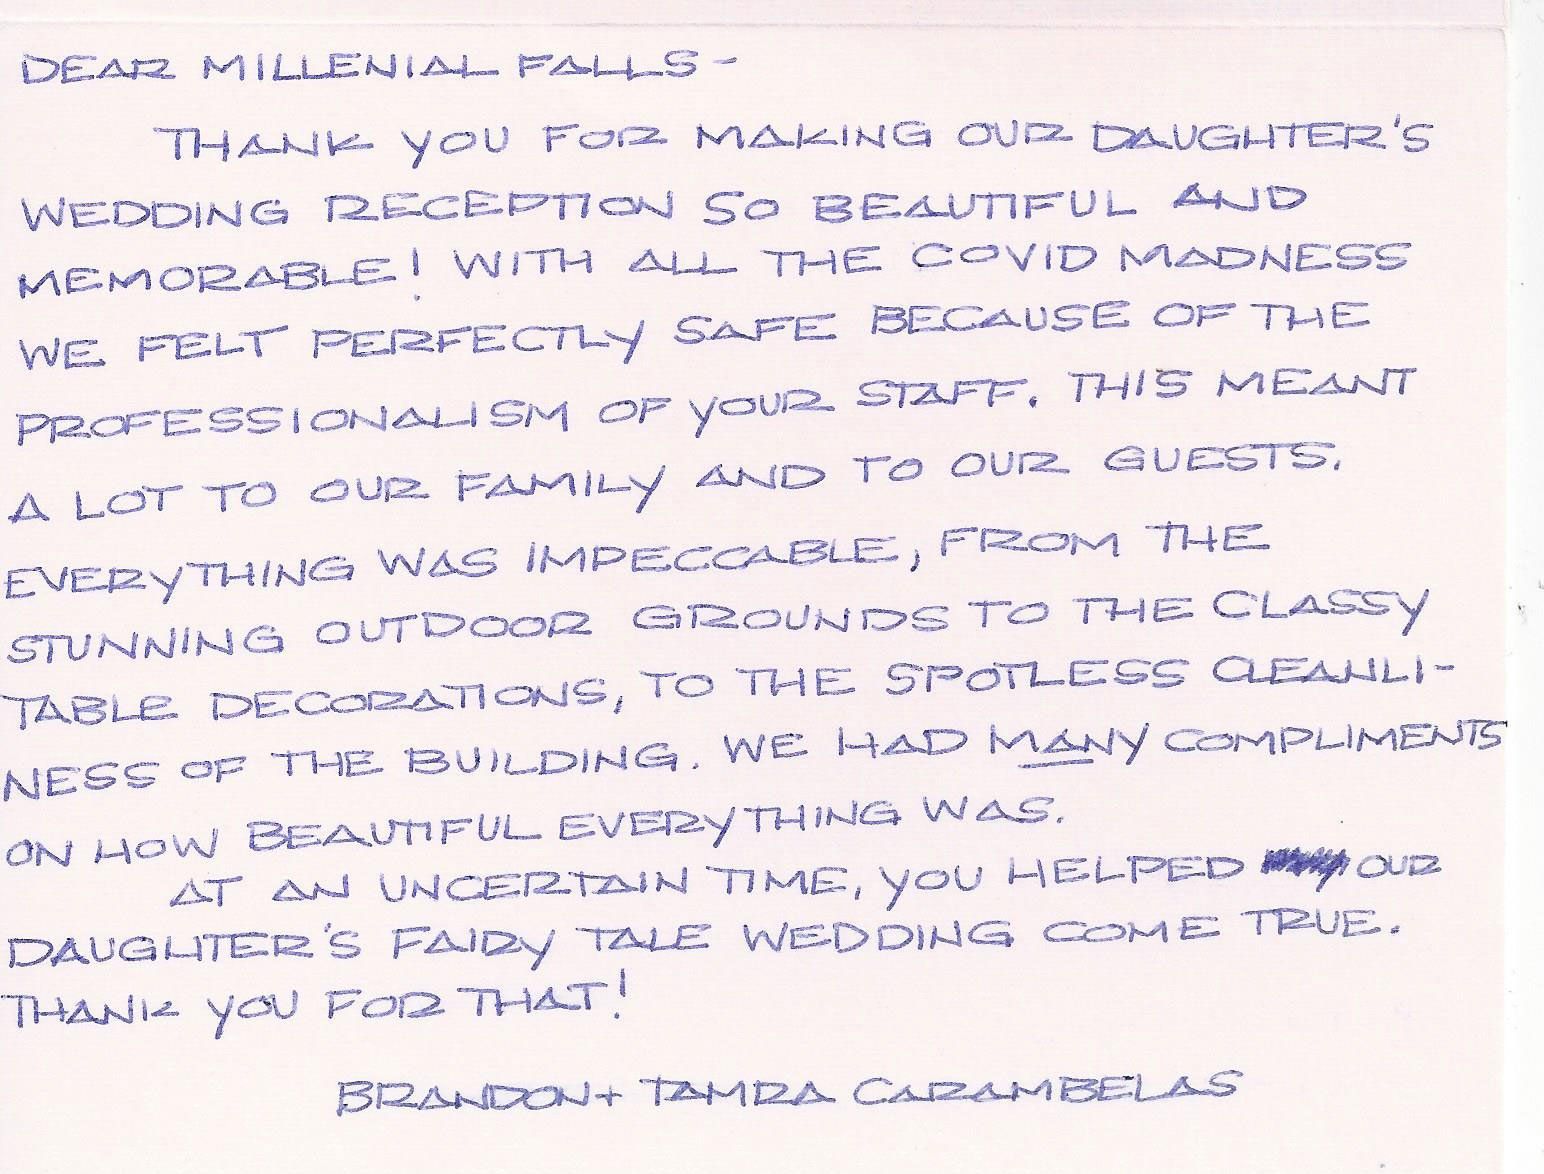 DEAR MILLENIAL FALLS-
THANK YOU FOR MAKING OUR DAUGHTER'S
WEDDING RECEPTION SO BEAUTIFUL AND
MEMORABLE! WITH ALL THE COVID MADNESS
WE FELT PERFECTLY SAFE BECAUSE OF THE
PROFESSIONALISM OF YOUR STAFF. THIS MEANT
A LOT TO OUR FAMILY AND TO OUR GUESTS.
EVERYTHING WAS IMPECCABLE, FROM THE
STUNNING OUTDOOR GROUNDS TO THE CLASSY
TABLE DECORATIONS, TO THE SPOTLESS CLEANLI-
NESS OF THE BUILDING. WE HAD MANY COMPLIMENTS
ON HOW BEAUTIFUL EVERYTHING WAS.
AT AN UNCERTAIN TIME, YOU HELPED OUR
DAUGHTER'S FAIRY TALE WEDDING COME TRUE.
THANK YOU FOR THAT!
BRANDON + TAMRA CARAMBELAS